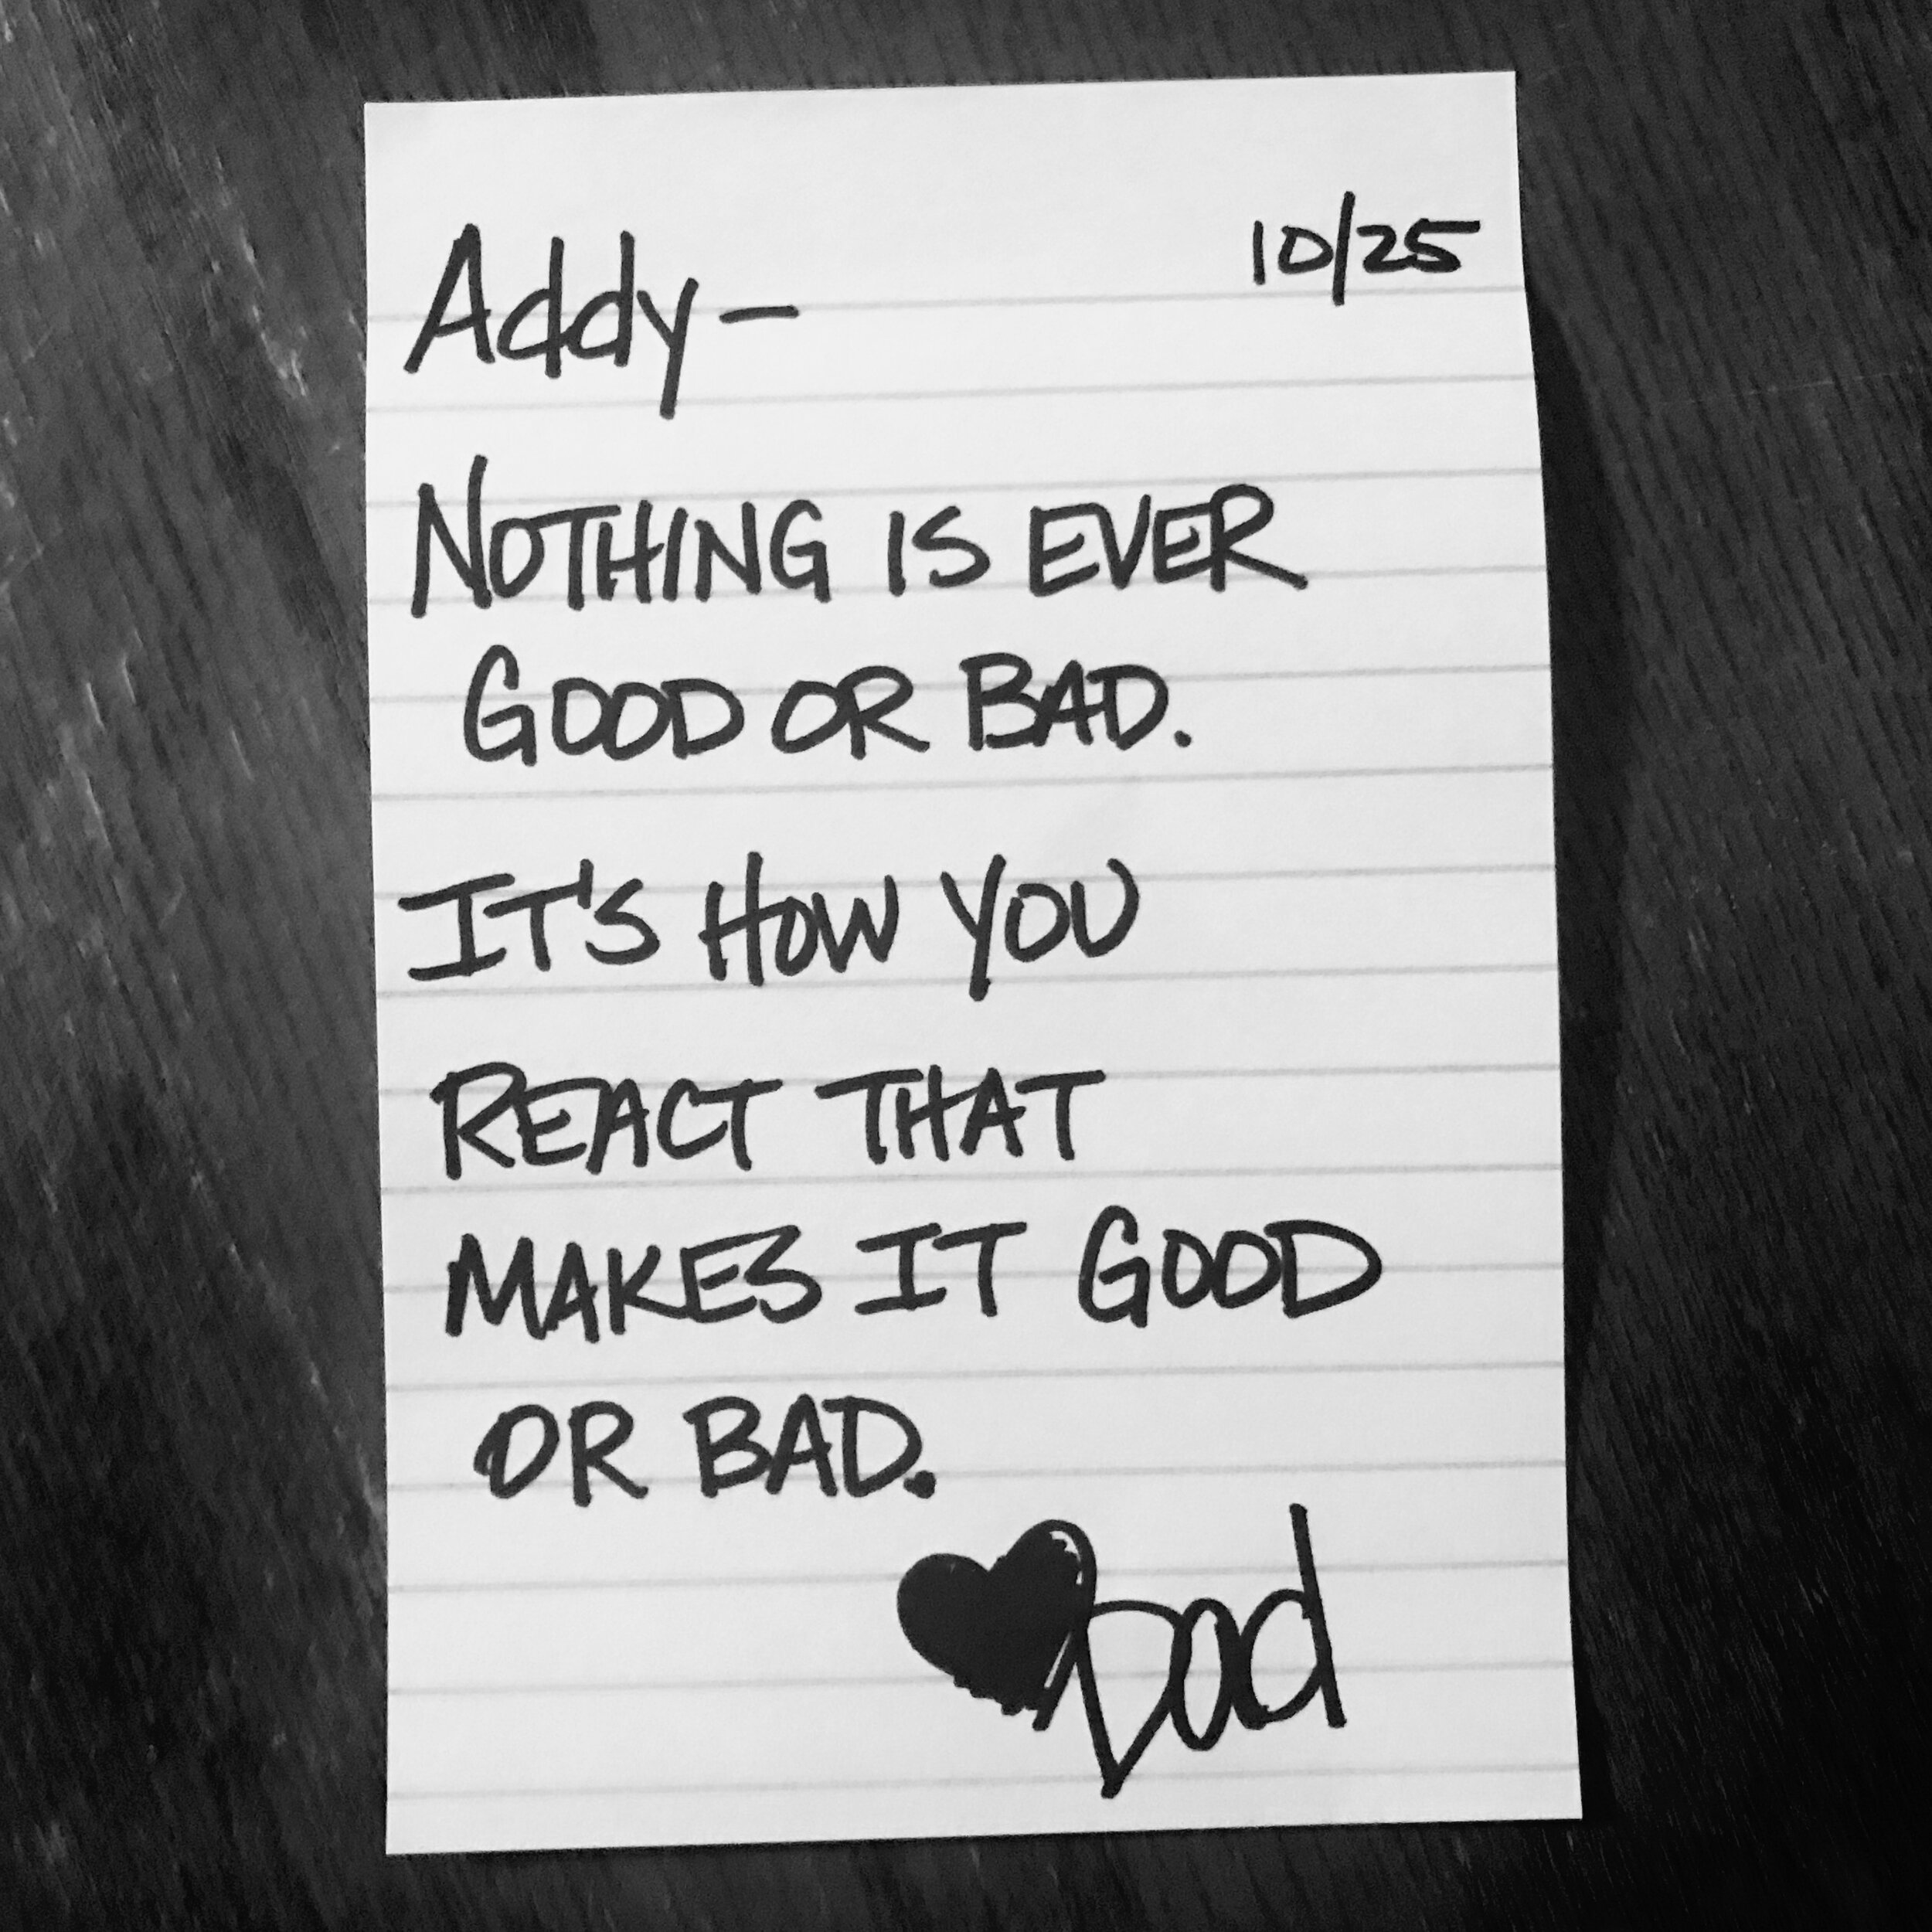 10/25
Addy-
NOTHING IS EVER
GOOD OR BAD.
IT'S HOW YOU
REACT THAT
MAKES IT GOOD
OR BAD.
Dad